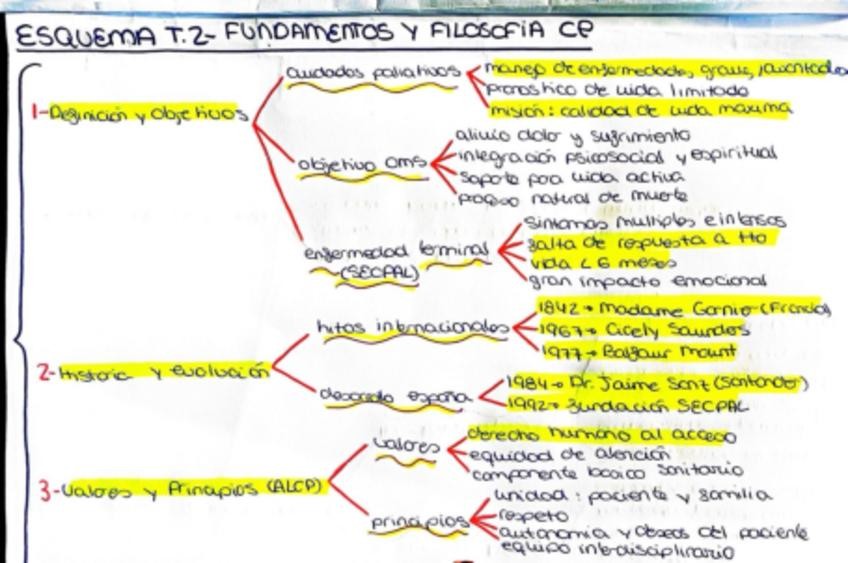 ESQUEMA T.2- FUNDAMENTOS Y FILOSOFÍA CP
1-Definición y objetivos
cuidados paliativos
manejo de enfermedades graves, avanzadas
pronostico de vida limitado
misión: calidad de vida maxima
objetivo OMS
alivio dolor y sufrimiento
integración psicosocial y espiritual
soporte para vida activa
proceso natural de muerte
enfermedad terminal
(SECPAL)
sintomas multiples e intensos
falta de respuesta a tto
vida < 6 meses
gran impacto emocional
2- Historia y evolución
hitos internacionales
1842→ Madame Garnier (Francia)
1967→ Cicely Saunders
1977→ Balfour Mount
desarrollo españa
1984→ Dr. Jaime Sanz (Santander)
1992→ fundación SECPAL
3-Valores y Principios (ALCP)
valores
derecho humano al acceso
equidad de atención
componente basico sanitario
principios
unidad: paciente y familia
respeto
autonomia y deseos del paciente
equipo interdisciplinario